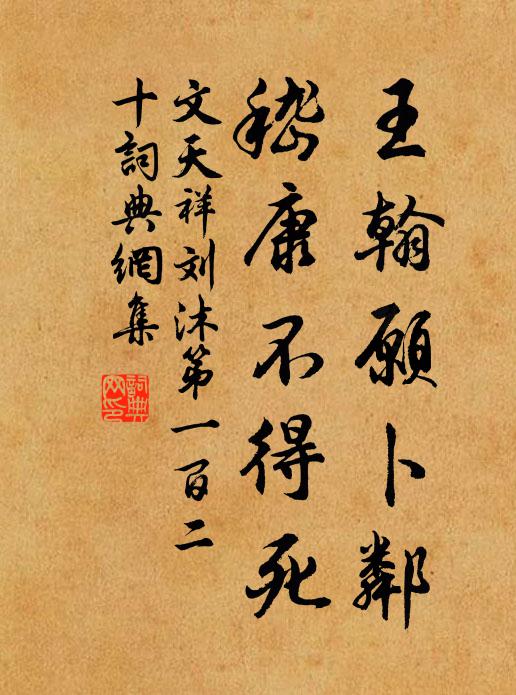 王翰願卜鄰
嵇康不得死
文天祥刘沐第一百二
十詞典網集
詞典网印